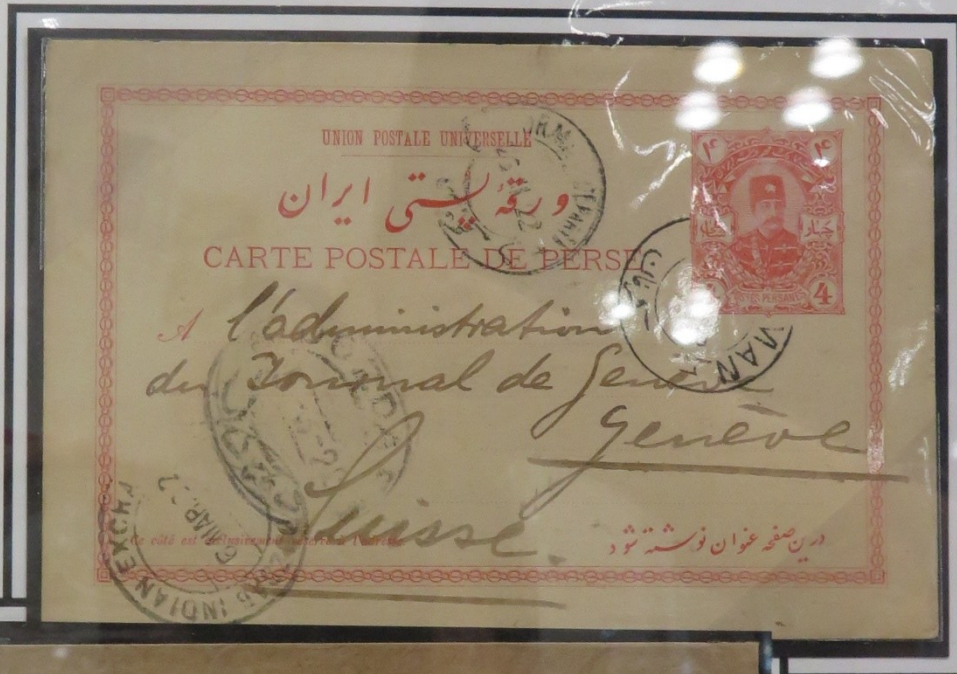 UNION POSTALE UNIVERSELLE
ورقهٔ پستی ایران
CARTE POSTALE DE PERSE
۴ ۴
چهار
4
POSTES PERSANES
A l'administration
du Journal de Genève
Genève
Suisse.
Ce côté est exclusivement réservé à l'adresse
درین صفحه عنوان نوشته شود
INDIAN EXCHA
MAR